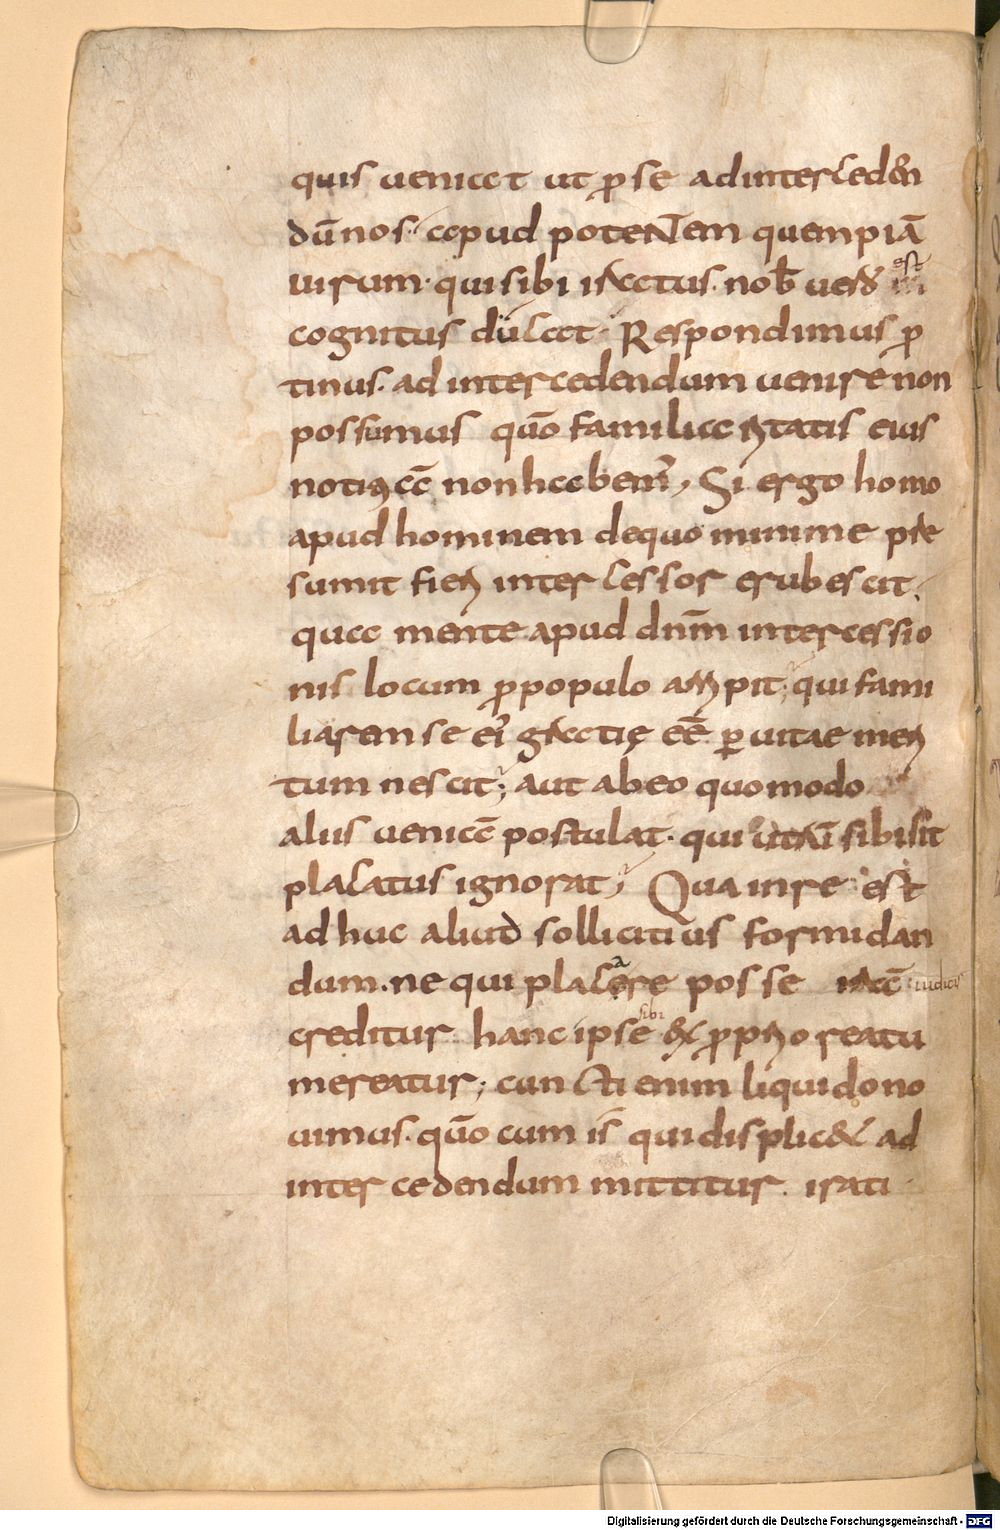 quis ueniat ut p̱ se adinterceden
dū nos. apud potentem quempiā
uirum. qui sibi iratus. nob̄ uero est in
cognitus ducat. Respondimus ꝓ
tinus. ad intercedendum uenire non
possumus qūo familiaritatis eius
noticiā non habem̄, Si ergo homo
apud hominem dequo minime pre
sumit fieri intercessor erubescit.
qua mente apud dn̄m intercessio
nis locum ꝓ populo arripit; qui fami
liarem se ei' gratię eē ꝑ uitae meri
tum nescit; aut ab eo quomodo
aliis ueniā postulat. qui utrū sibi sit
placatus ignorat; Qua in re est
ad huc aliud sollicitius formidan
dum. ne qui placare posse irā iudicis
creditur hanc ipse sibi & ꝓprio reatu
mereatur; cuncti enim liquido no
uimus. qūo cum is̄ qui displic& ad
intercedendum mittitur. irati
Digitalisierung gefördert durch die Deutsche Forschungsgemeinschaft - DFG